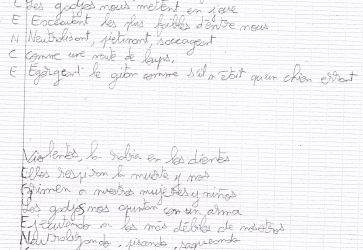 C Les gadjos nous mettent en joue
E Exécutent les plus faibles d'entre nous
N Neutralisant, piétinant, saccageant
C Comme une meute de loups,
E Egorgeant le gitan comme s'il n'était qu'un chien errant
Violentos, la rabia en los dientes
Ellos respiran la muerte y nos
Oprimen a nuestras mujeres y niños
Los gadjos nos apuntan con un arma
Ejecutando a los más débiles de nosotros
Neutralizando, pisando, saqueando